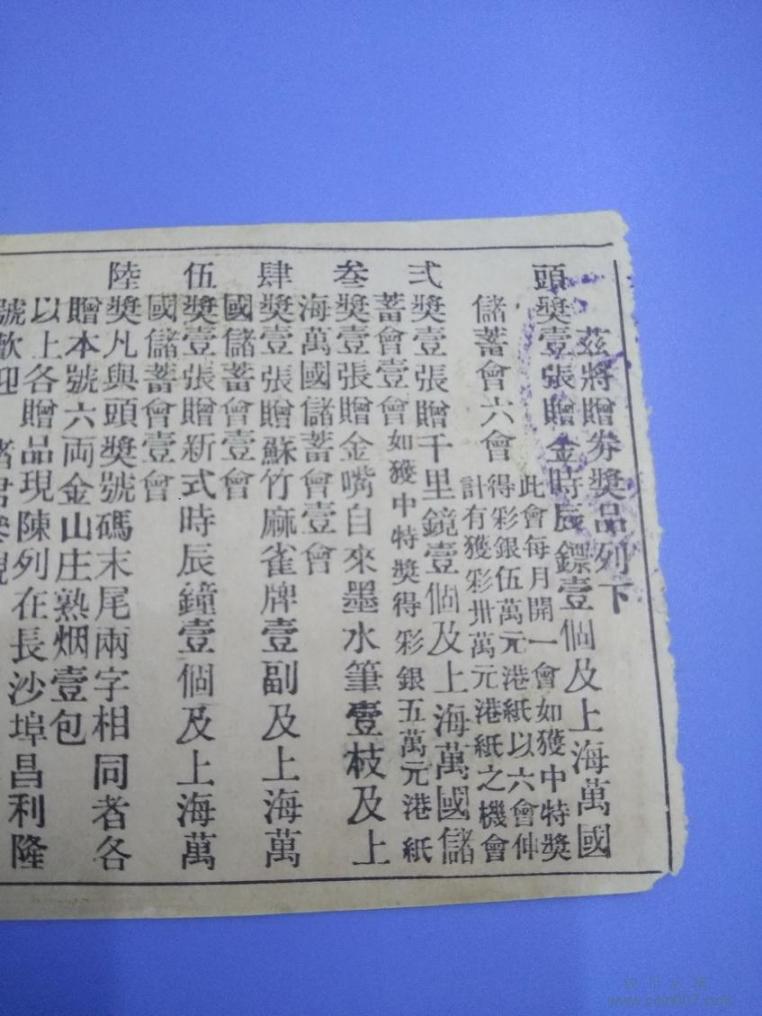 茲將贈券獎品列下
頭獎壹張贈金時辰鏢壹個及上海萬國
儲蓄會六會
此會每月開一會如獲中特獎
得彩銀伍萬元港紙以六會伸
計有獲彩卅萬元港紙之機會
弍獎壹張贈千里鏡壹個及上海萬國儲
蓄會壹會如獲中特獎得彩銀五萬元港紙
叁獎壹張贈金嘴自來墨水筆壹枝及上
海萬國儲蓄會壹會
肆獎壹張贈蘇竹麻雀牌壹副及上海萬
國儲蓄會壹會
伍獎壹張贈新式時辰鐘壹個及上海萬
國儲蓄會壹會
陸獎凡與頭獎號碼末尾兩字相同者各
贈本號六両金山庄熟烟壹包
以上各贈品現陳列在長沙埠昌利隆
號歡迎